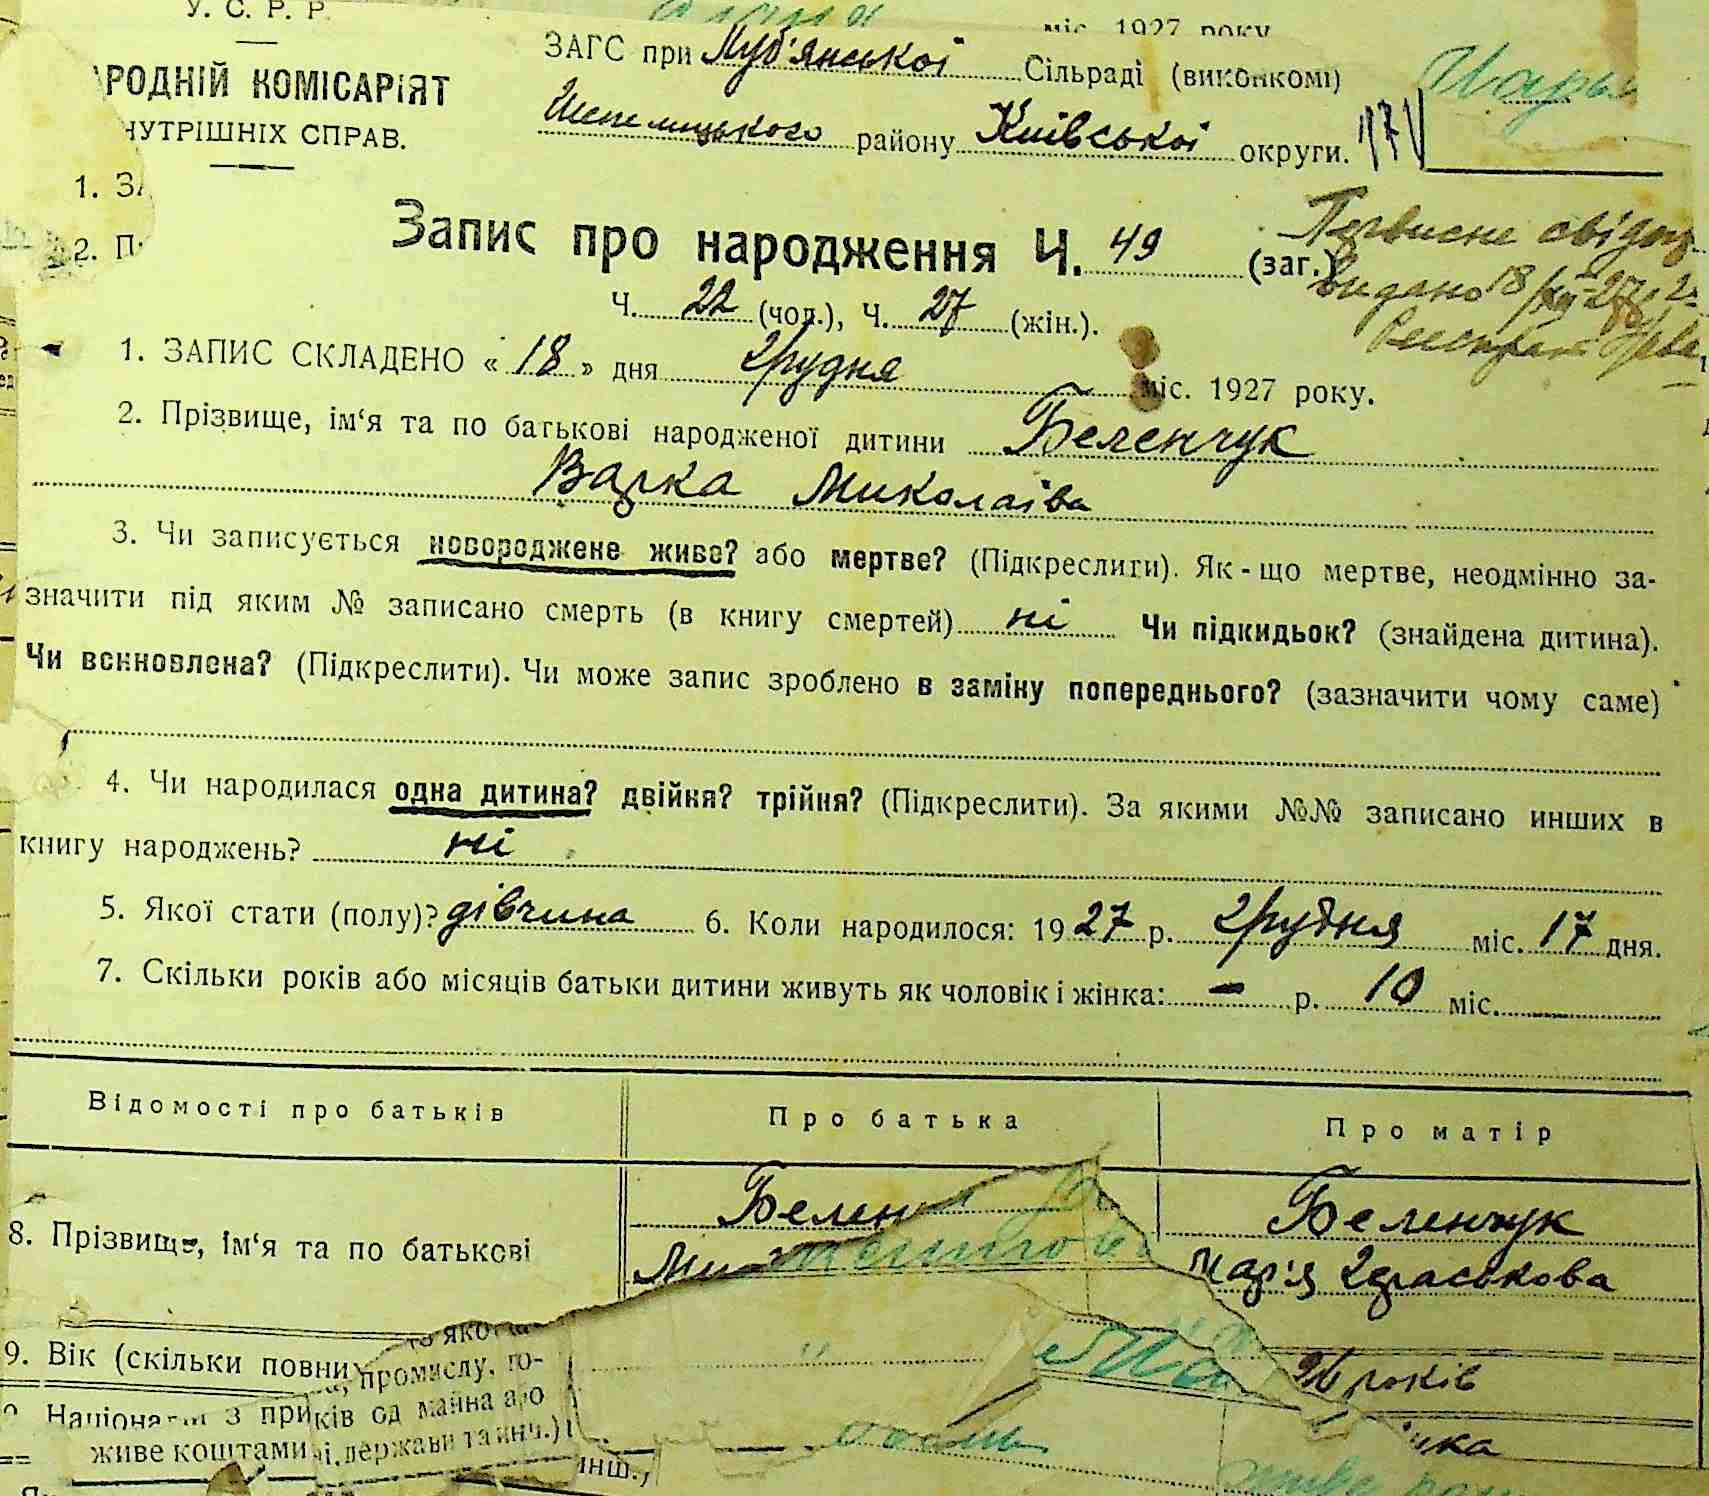 У. С. Р. Р.
міс. 1927 року
РОДНІЙ КОМІСАРІЯТ
НУТРІШНІХ СПРАВ.
ЗАГС при Луб'янської Сільраді (виконкомі)
Шепелицького району Київської округи.
1. ЗА
2. П
Запис про народження Ч. 49 (заг.)
Первисне свідоц
видано 18/XII-27 р
Ч. 22 (чол.), Ч. 27 (жін.).
1. ЗАПИС СКЛАДЕНО « 18 » дня Грудня міс. 1927 року.
2. Прізвище, ім‘я та по батькові народженої дитини Беленчук
Варка Миколаїва
3. Чи записується новороджене живе? або мертве? (Підкреслити). Як-що мертве, неодмінно за-
значити під яким № записано смерть (в книгу смертей) ні Чи підкидьок? (знайдена дитина).
Чи всиновлена? (Підкреслити). Чи може запис зроблено в заміну попереднього? (зазначити чому саме)
4. Чи народилася одна дитина? двійня? трійня? (Підкреслити). За якими №№ записано инших в
книгу народжень? ні
5. Якої стати (полу)? дівчина 6. Коли народилося: 1927 р. Грудня міс. 17 дня.
7. Скільки років або місяців батьки дитини живуть як чоловік і жінка: – р. 10 міс.
Відомості про батьків Про батька Про матір
8. Прізвище, ім‘я та по батькові Белен Беленчук
Ми Марія Гдраськова
9. Вік (скільки повних 26 років
промислу, го-
Націона з приків од майна або
живе коштами і, держави та инч.)
инш.,